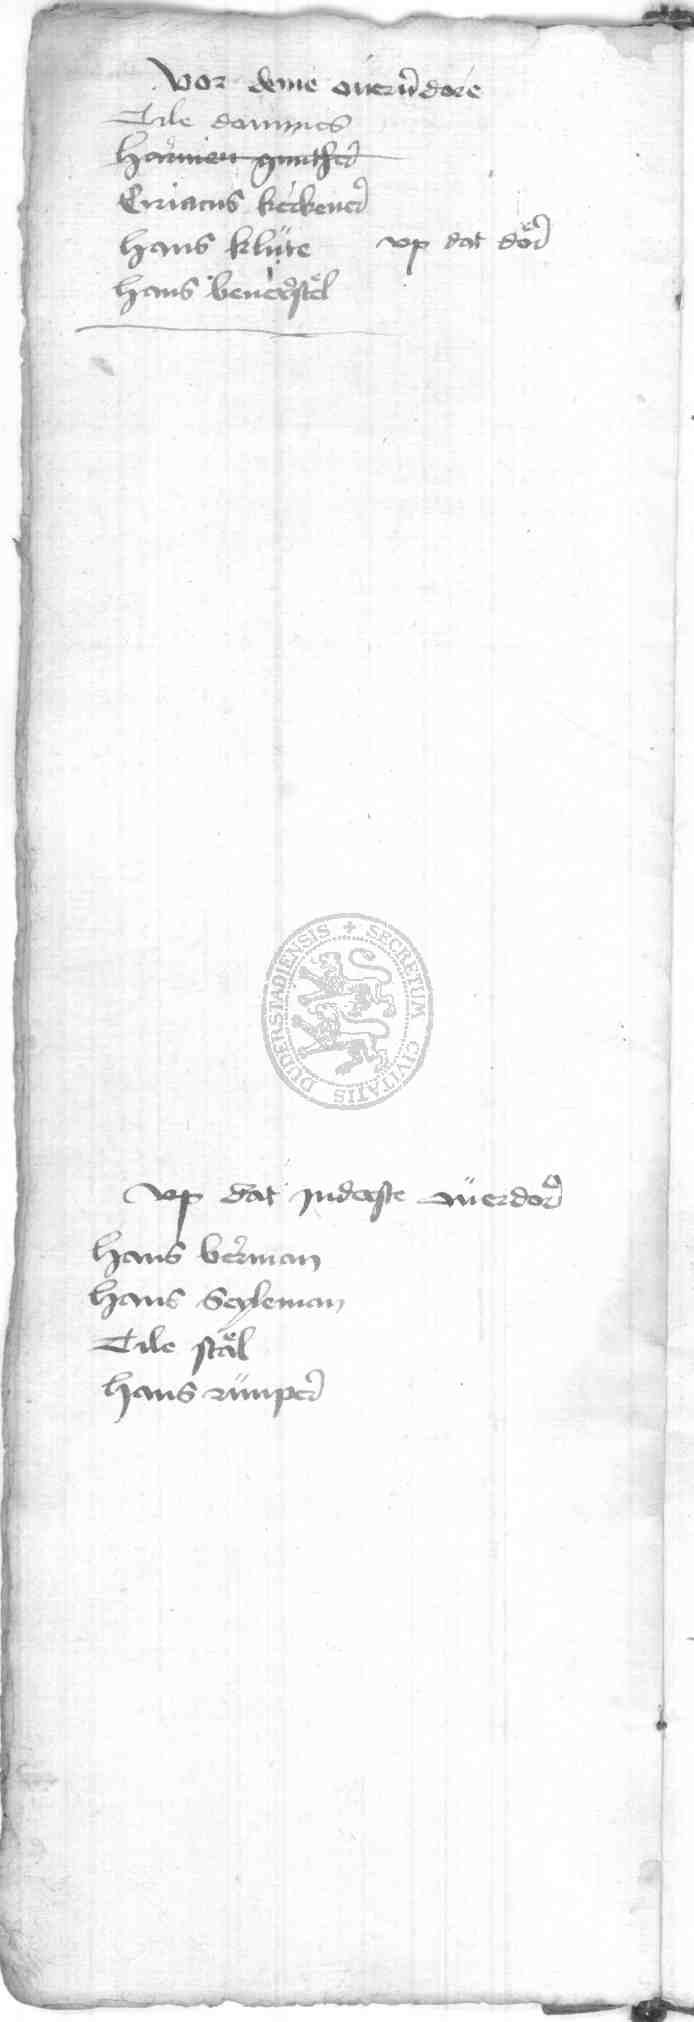 Vor deme ouerndore
Tile dannnes
Harmen gunther
Ciriacus kerkener
Hans klüte vp dat doͤr
Hans beuerstel
SECRETUM CIVITATIS DUDERSTADIENSIS
vp dat inderste öuerdor
Hans berman
Hans Seyleman
Tile staͤl
Hans rümper